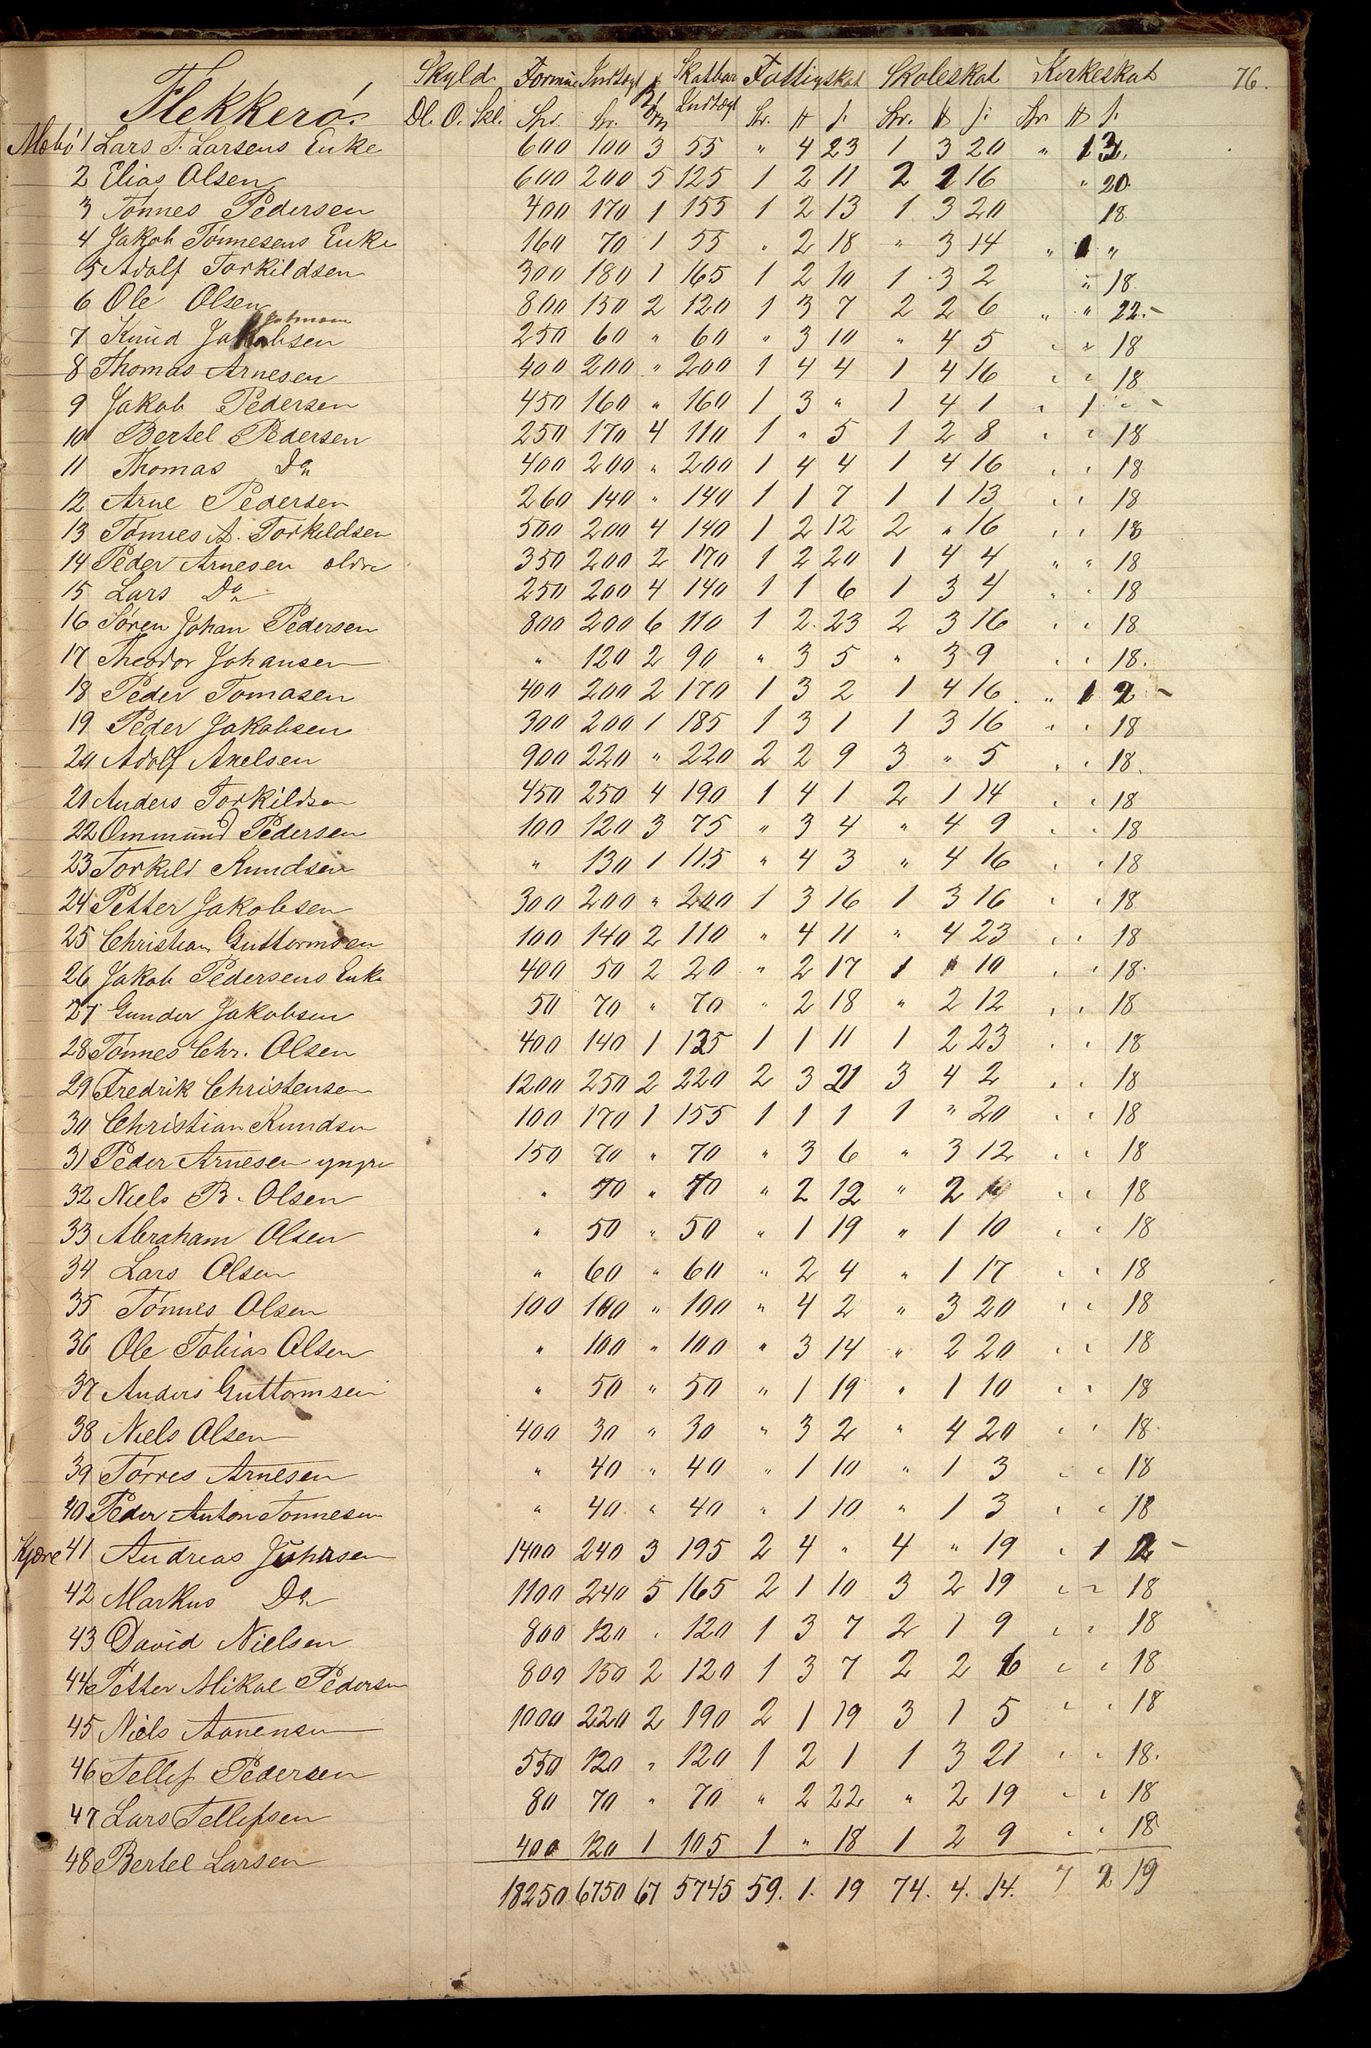 Skyld. Formue Indtægt Børn Skatbar Indtægt Fattigskat Skoleskat Kirkeskat 76.
Flekkerø. Dl. O. Skl. Spd. Spr. Spr. # s: Spr. # s: Spr. # s.
Mæbø 1 Lars T. Larsens Enke 600 100 3 55 " 4 23 1 3 20 " 1 3.
2 Elias Olsen 600 200 5 125 1 2 11 2 1 16 " 20
3 Tönnes Pedersen 400 170 1 155 1 2 13 1 3 20 18
4 Jakob Tönnesens Enke 160 70 1 55 " 2 18 " 3 14 " 1 "
5 Adolf Torkildsen 300 180 1 165 1 2 10 1 3 2 " 18
6 Ole Olsen 800 150 2 120 1 3 7 2 2 6 " " 22.-
7 Knud Jakobsen 250 60 " 60 " 3 10 " 4 5 " " 18
8 Thomas Arnesen 400 200 " 200 1 4 4 1 4 16 " " 18
9 Jakob Pedersen 450 160 " 160 1 3 " 1 4 1 " 1 " -
10 Bertel Pedersen 250 170 4 110 1 " 5 1 2 8 " " 18
11 Thomas Do 400 200 " 200 1 4 4 1 4 16 " " 18
12 Arne Pedersen 260 140 " 140 1 1 7 1 1 13 " " 18
13 Tönnes A. Torkildsen 500 200 4 140 1 2 12 2 " 16 " " 18
14 Peder Arnesen eldre 350 200 2 170 1 2 20 1 4 4 " " 18
15 Lars Do 250 200 4 140 1 1 6 1 3 4 " " 18
16 Søren Johan Pedersen 800 200 6 110 1 2 23 2 3 16 " " 18
17 Theodor Johansen " 120 2 90 " 3 5 " 3 9 " " 18.
18 Peder Tomasen 400 200 2 170 1 3 2 1 4 16 " 1 2 -
19 Peder Jakobsen 300 200 1 185 1 3 1 1 3 16 " " 18
20 Adolf Axelsen 900 220 " 220 2 2 9 3 " 5 " " 18.
21 Anders Torkildsen 450 250 4 190 1 4 1 2 1 14 " " 18
22 Ommund Pedersen 100 120 3 75 " 3 4 " 4 9 " " 18
23 Torkild Knudsen " 130 1 115 " 4 3 " 4 16 " " 18
24 Petter Jakobsen 300 200 " 200 1 3 16 1 3 16 " " 18
25 Christian Guttormsen 100 140 2 110 " 4 11 " 4 23 " " 18
26 Jakob Pedersens Enke 400 50 2 20 " 2 17 1 " 10 " " 18.
27 Gunder Jakobsen 50 70 " 70 " 2 18 " 2 12 " " 18
28 Tönnes Chr. Olsen 400 140 1 125 1 1 11 1 2 23 " " 18
29 Fredrik Christensen 1200 250 2 220 2 3 21 3 4 2 " " 18
30 Christian Knudsen 100 170 1 155 1 1 1 1 " 20 " " 18
31 Peder Arnesen yngre 150 70 " 70 " 3 6 " 3 12 " " 18
32 Niels B. Olsen " 70 " 70 " 2 12 " 2 " " 18
33 Abraham Olsen " 50 " 50 " 1 19 " 1 10 " " 18
34 Lars Olsen " 60 " 60 " 2 4 " 1 17 " " 18
35 Tönnes Olsen 100 100 " 100 " 4 2 " 3 20 " " 18
36 Ole Tobias Olsen " 100 " 100 " 3 14 " 2 20 " " 18
37 Anders Guttormsen " 50 " 50 " 1 19 " 1 10 " " 18
38 Niels Olsen 400 30 " 30 " 3 2 " 4 20 " " 18
39 Törres Arnesen " 40 " 40 " 1 10 " 1 3 " " 18
40 Peder Anton Tönnesen " 40 " 40 " 1 10 " 1 3 " " 18
Kjære 41 Andreas Johnsen 1400 240 3 195 2 4 " 4 " 19 " 1 2 -
42 Markus Do 1100 240 5 165 2 1 10 3 2 19 " " 18
43 David Nielsen 800 120 " 120 1 3 7 2 1 9 " " 18
44 Petter Mikal Pedersen 800 150 2 120 1 3 7 2 2 6 " " 18
45 Niels Aanensen 1000 220 2 190 2 1 19 3 1 5 " " 18
46 Tellef Pedersen 550 120 " 120 1 2 1 1 3 21 " " 18.
47 Lars Tellefsen 80 70 " 70 " 2 22 " 2 19 " " 18
48 Bertel Larsen 400 120 1 105 1 " 18 1 2 9 " " 18
18250 6750 67 5745 59. 1. 19 74. 4. 14. 7 2 19